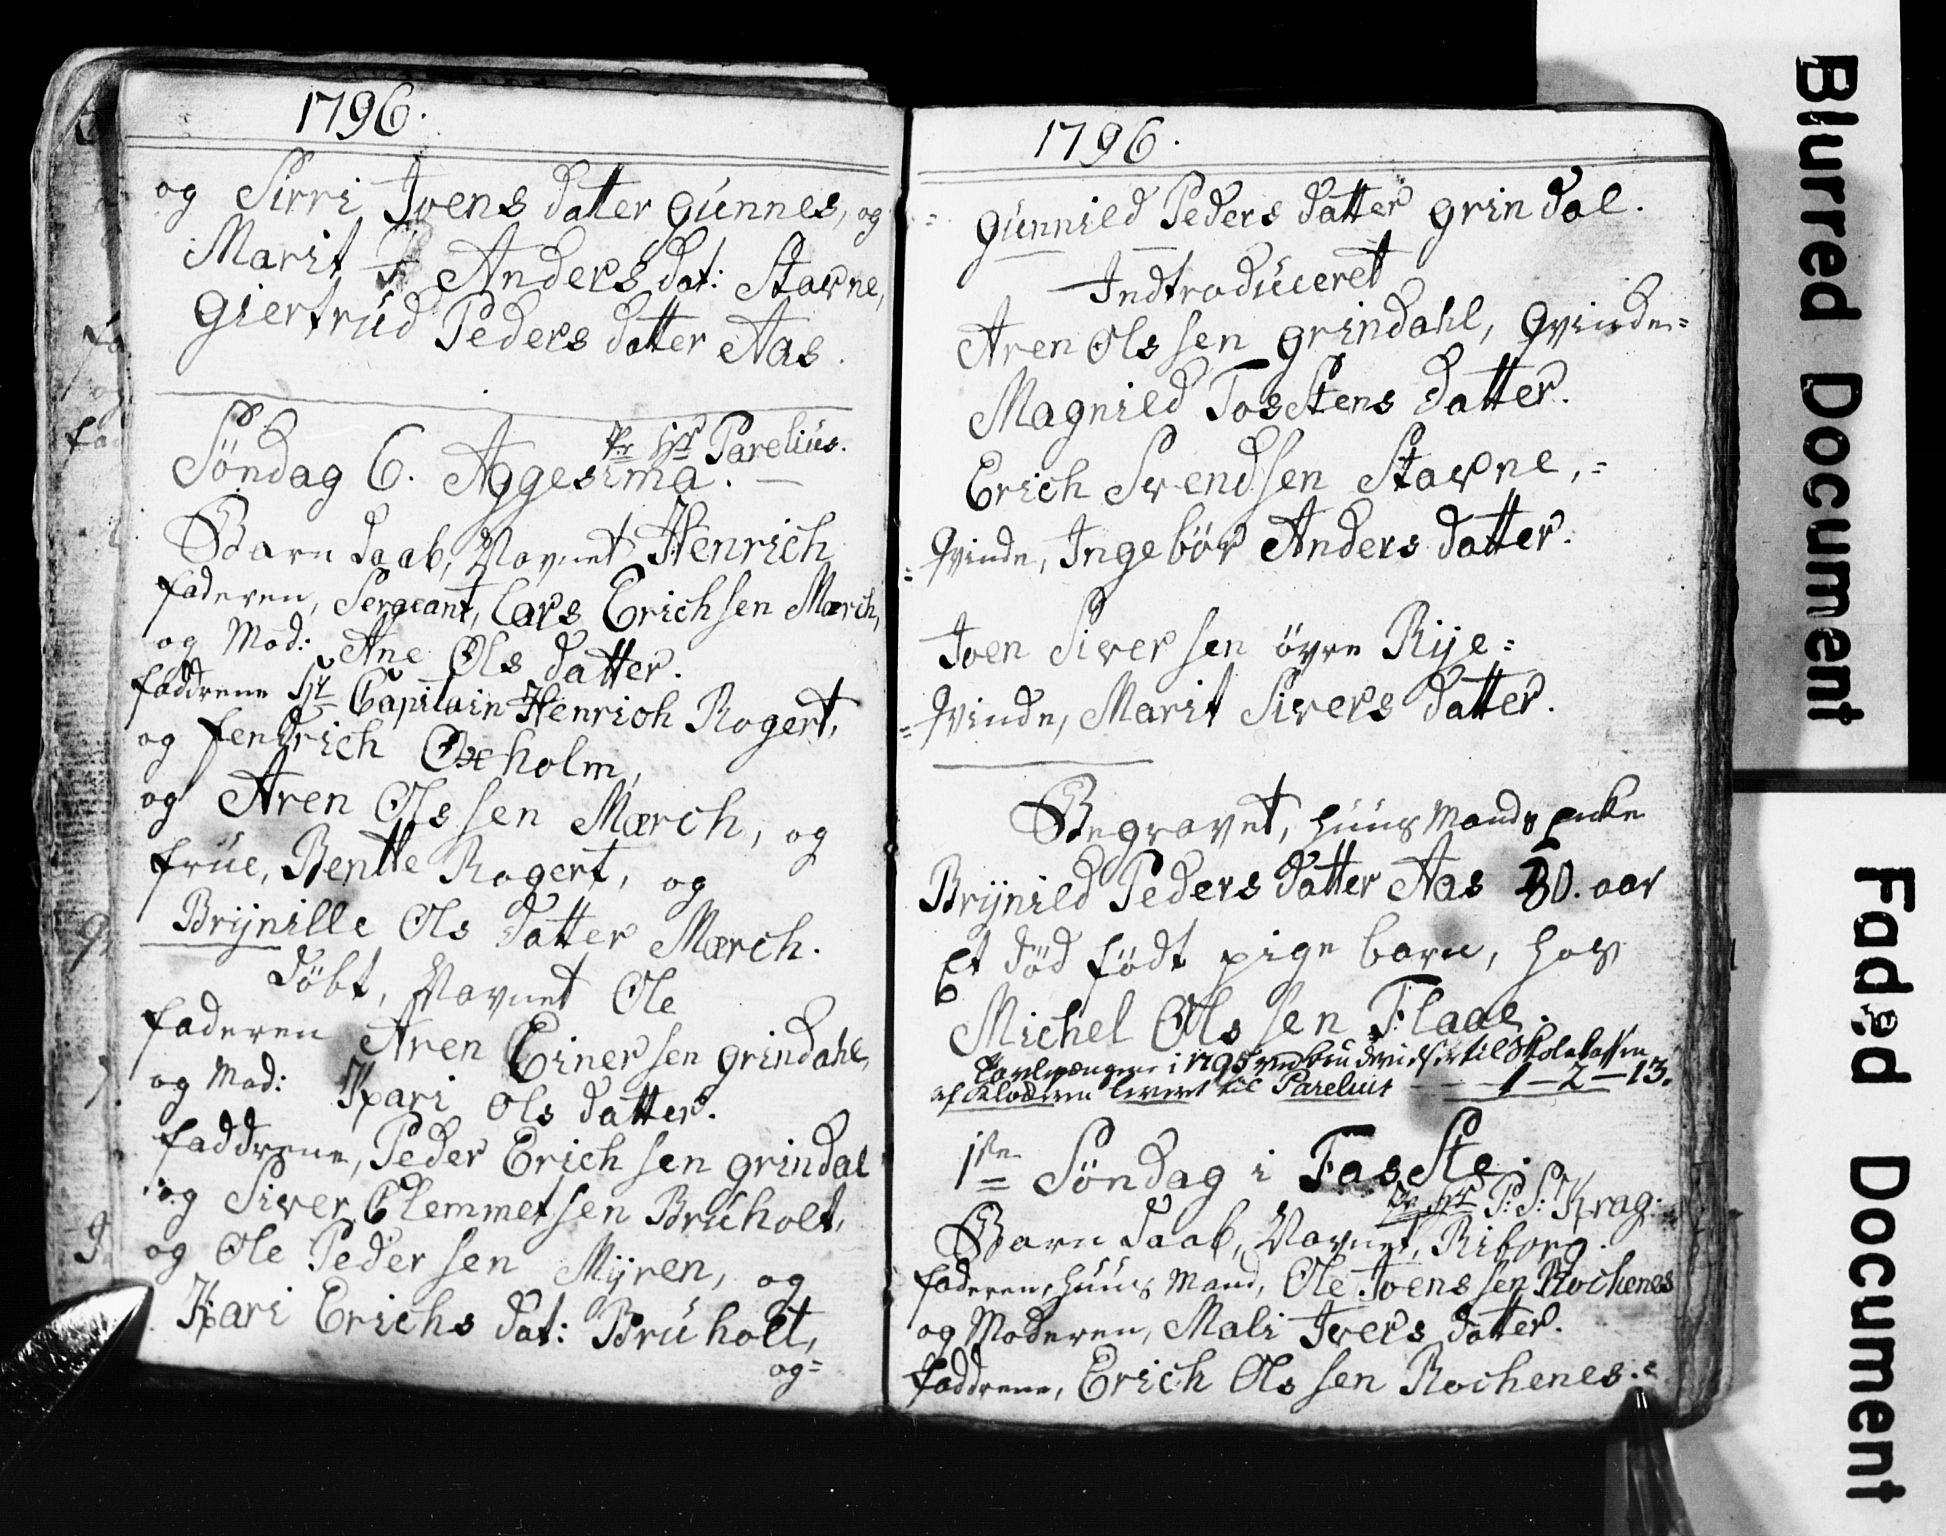 1796.
og Sirri Joens datter gunnes, og
Marit Anders dat: Stavne,
Giertrud Peders datter Aas.
Pr. Hr Parelius.
Söndag 6. Aggesima.
Barn daab, Navnet Henrich
faderen, Sergeant, Lars Erichsen Mærch,
og Mod: Ane Ols datter.
faddrene Hr Capitain Henrich Rogert,
og fendrich Oxeholm,
og Aren Olssen Mærch, og
frue, Bentte Rogert, og
Brynille Ols datter Mærch.
döbt, Navnet Ole
faderen Aren Einersen grindahl,
og Mod: Kari Ols datter.
faddrene, Peder Erichsen grindal
og Siver Clemmetsen Bruholt,
og Ole Pedersen Myren, og
Kari Erichs dat: Bruholt,
og=
1796.
= gunnild Peders datter grindal.
Indtroduceret
Aren Olssen grindahl, Qvinde=
Magnild Tosstens datter.
Erich Svendsen Stavne,=
= Qvinde, Ingebör Anders datter.
Joen Siversen övre Rye=
= Qvinde, Marit Sivers datter.
Begravet, Huus Mands Enke
Brynild Peders datter Aas 80. aar
Et död födt pige barn, hos
Michel Olssen Flaae.
i 1795 til Skolekassen
af Klokkeren levert til Parelius — 1 — 2 — 13.
1ste Söndag i Fasste.
Pr. Hr P: S: Krag.
Barn daab, Navnet, Riborg.
faderen, Huus Mand, Ole Joenssen Rochenes
og Moderen, Mali Ivers datter.
faddrene, Erich Olssen Rochenes.=
Blurred Document
Faded Document